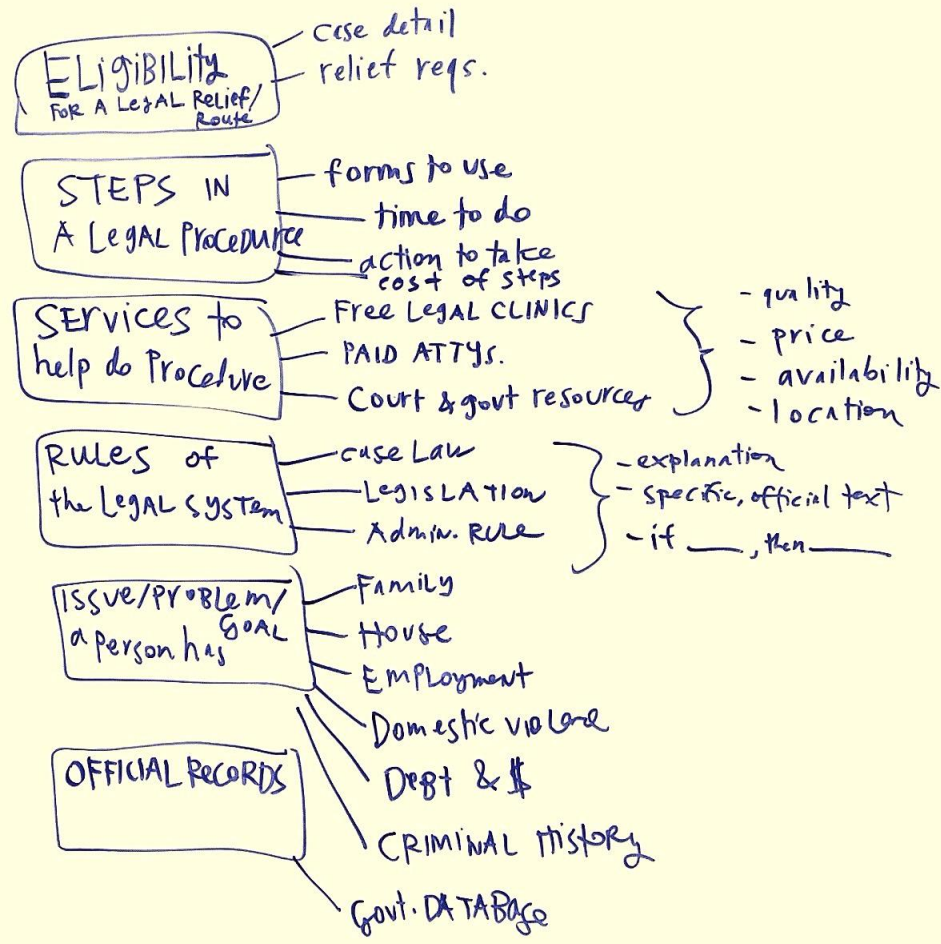 ELigiBILity
FOR A LegAL Relief/
Route
case detail
relief reqs.
STEPS IN
A LegAL Procedurce
forms to use
time to do
action to take
cost of steps
SERVICES to
help do Procedure
Free LegAL CLINICS
PAID ATTYS.
Court & govt resources
- quality
- price
- availability
- location
RULES of
the LegAL SYSTEM
case Law
LEGISLATION
Admin. RULE
- explanation
- specific, official text
- if ____, then ____
ISSUE/PROBLEM/
GOAL
a person has
FAMILY
House
EMPLOYMENT
Domestic violence
Debt & $
CRIMINAL HISTORY
OFFICIAL RECORDS
Govt. DATABase